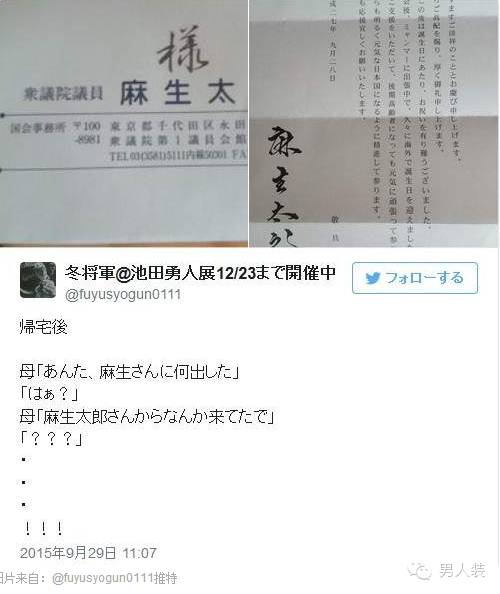 様
衆議院議員 麻生太
国会事務所 〒100-8981 東京都千代田区永田
衆議院第1議員会館
TEL03(3581)5111内線50301 FA
ますご清祥のこととお慶び申し上げます。
ご高配を賜り、厚く御礼申し上げます。
この度は誕生日にあたり、お祝いを有り難うございました。
会後、ミャンマーに出張中で、久々に海外で誕生日を迎えました
ご支援をいただいて、後期高齢者になっても元気に頑張って参
らも明るく元気な日本国になるように精進して参ります。
も応援宜しくお願いいたします。
敬具
成二七年 九月二八日
麻生太郎
冬将軍@池田勇人展12/23まで開催中
@fuyusyogun0111
フォローする
帰宅後
母「あんた、麻生さんに何出した」
「はぁ？」
母「麻生太郎さんからなんか来てたで」
「？？？」
・
・
・
！！！
2015年9月29日 11:07
片来自：@fuyusyogun0111推特
男人装